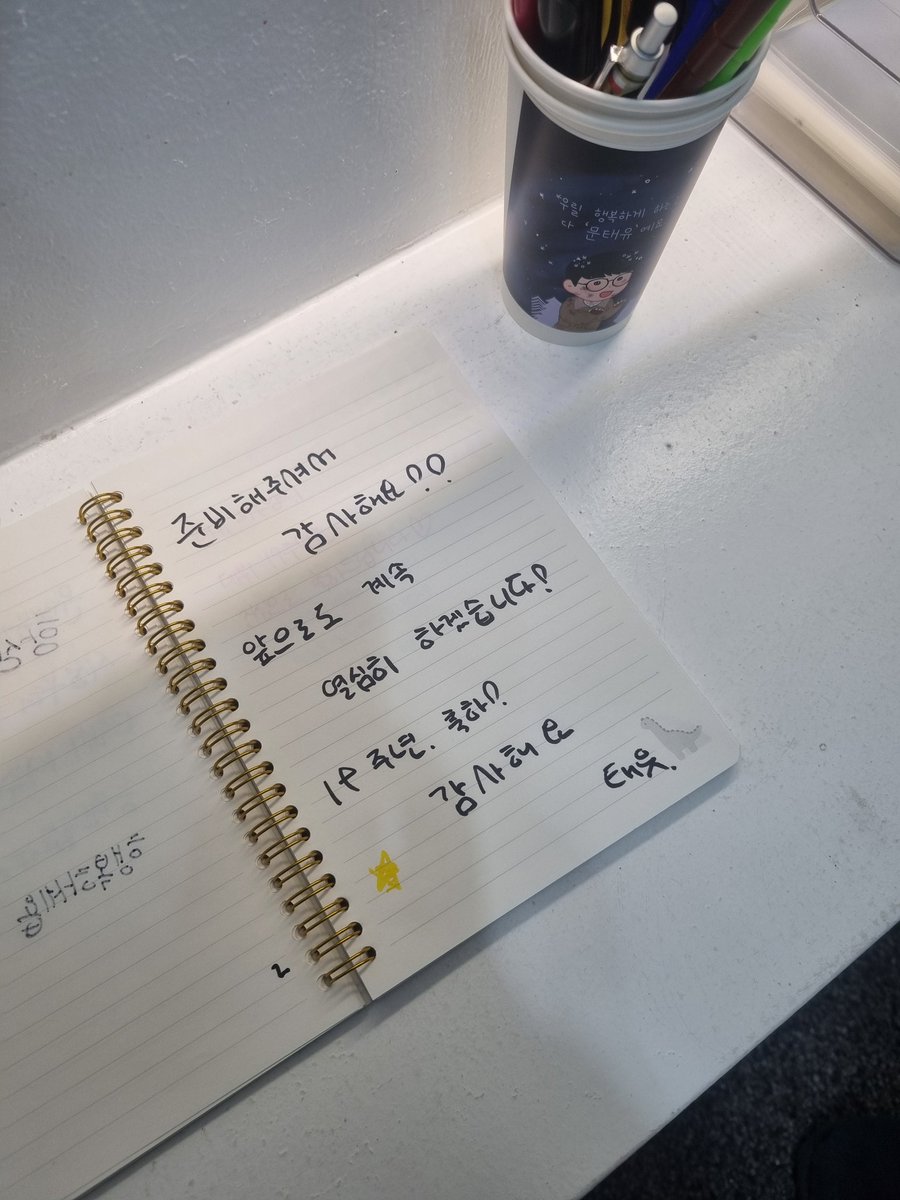 "우릴 행복하게
다 '문태유'예요
준비해주셔서
감사해요!!
앞으로도 계속
열심히 하겠습니다!
주년. 축하!
감사해요
태윳.
2